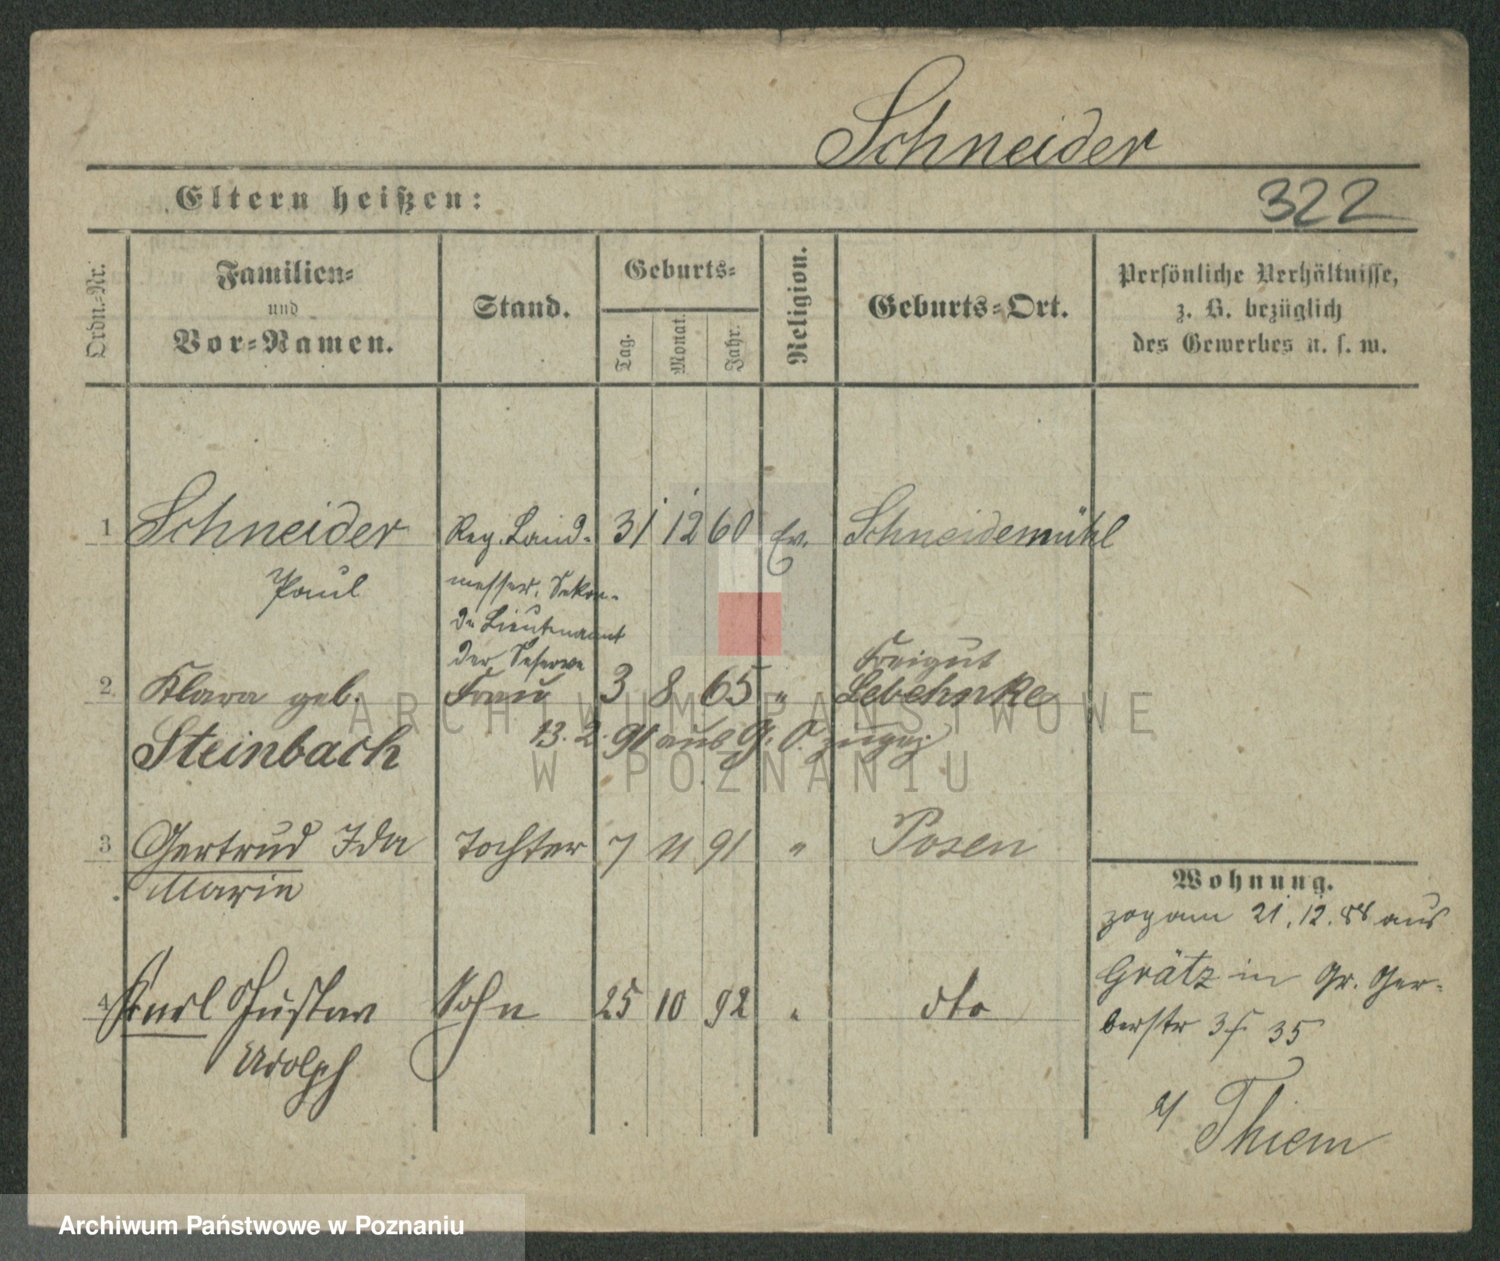 Schneider
Eltern heißen:
322
Ordn.-Nr.
Familien-
und
Vor-Namen.
Stand.
Geburts-
Tag.
Monat.
Jahr.
Religion.
Geburts-Ort.
Persönliche Verhältnisse,
z. B. bezüglich
des Gewerbes u. s. w.
1 Schneider Reg. Land- 31 12 60 Ev. Schneidemühl
Paul messer, Sekon-
de Lieutenant
der Reserve
Freigut
2. Klara geb. Frau 3 8 65 " Lebehnke
Steinbach 13. 2. 91 aus G. O. zugez
3 Gertrud Ida Tochter 7 11 91 " Posen
Marie
4 Karl Gustav Sohn 25 10 92 " dto
Adolph
Wohnung.
zog am 21. 12. 88 aus
Grätz in Gr. Ger-
berstr 35
Thiem
ARCHIWUM PAŃSTWOWE
W POZNANIU
Archiwum Państwowe w Poznaniu